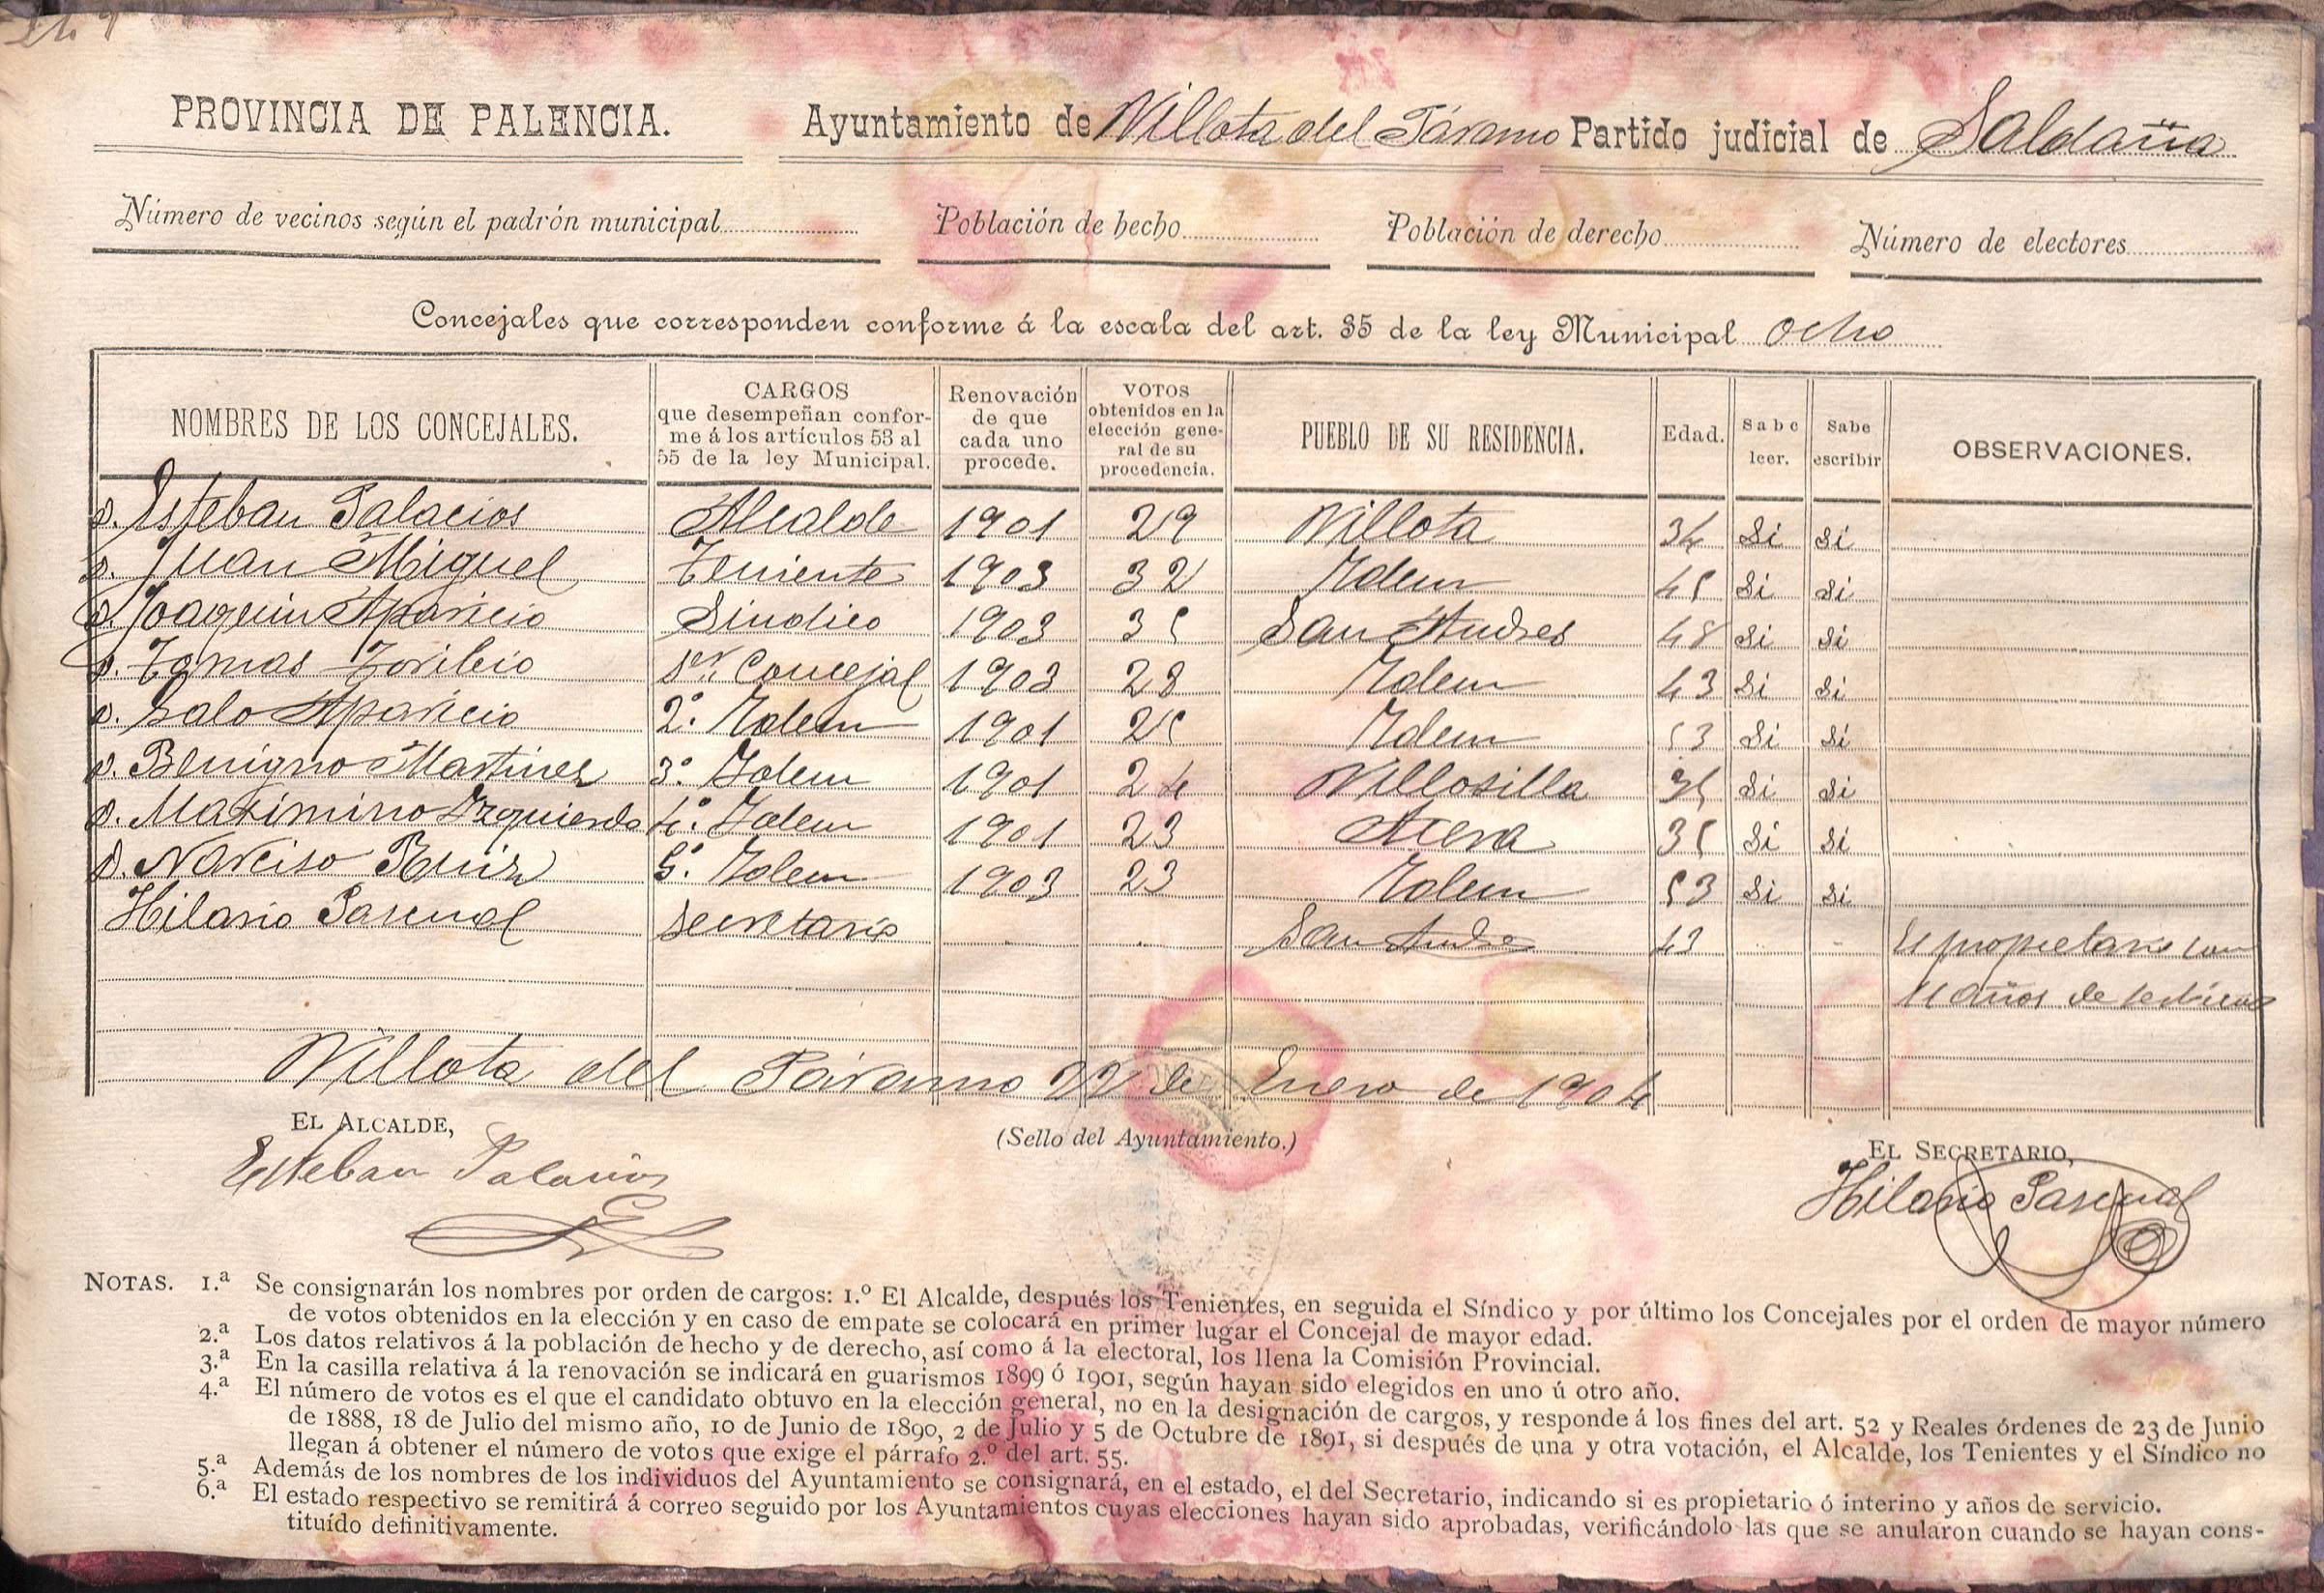 PROVINCIA DE PALENCIA. Ayuntamiento de Villota del Páramo Partido judicial de Saldaña
Número de vecinos según el padrón municipal Población de hecho Población de derecho Número de electores
Concejales que corresponden conforme á la escala del art. 35 de la ley Municipal ocho
NOMBRES DE LOS CONCEJALES. CARGOS que desempeñan conforme á los artículos 53 al 55 de la ley Municipal. Renovación de que cada uno procede. VOTOS obtenidos en la elección general de su procedencia. PUEBLO DE SU RESIDENCIA. Edad. Sabe leer. Sabe escribir OBSERVACIONES.
D. Esteban Palacios Alcalde 1901 29 Villota 34 Si Si
D. Juan Miguel Teniente 1903 32 Idem 45 Si Si
D. Joaquin Aparicio Sindico 1903 35 San Andres 48 Si Si
D. Tomas Toribio 1er Concejal 1903 28 Idem 43 Si Si
D. Lalo Aparicio 2º. Idem 1901 25 Idem 53 Si Si
D. Benigno Martinez 3º. Idem 1901 24 Villosilla 35 Si Si
D. Maximino Izquierdo 4º. Idem 1901 23 Acera 35 Si Si
D. Narciso Ruiz 5º. Idem 1903 23 Idem 53 Si Si
Hilario Pascual Secretario San Andres 43 Es propietario con
años de
Villota del Páramo 22 de Enero de 1904
EL ALCALDE, (Sello del Ayuntamiento.) EL SECRETARIO,
Esteban Palacios Hilario Pascual
NOTAS. 1.ª Se consignarán los nombres por orden de cargos: 1.º El Alcalde, después los Tenientes, en seguida el Síndico y por último los Concejales por el orden de mayor número
de votos obtenidos en la elección y en caso de empate se colocará en primer lugar el Concejal de mayor edad.
2.ª Los datos relativos á la población de hecho y de derecho, así como á la electoral, los llena la Comisión Provincial.
3.ª En la casilla relativa á la renovación se indicará en guarismos 1899 ó 1901, según hayan sido elegidos en uno ú otro año.
4.ª El número de votos es el que el candidato obtuvo en la elección general, no en la designación de cargos, y responde á los fines del art. 52 y Reales órdenes de 23 de Junio
de 1888, 18 de Julio del mismo año, 10 de Junio de 1890, 2 de Julio y 5 de Octubre de 1891, si después de una y otra votación, el Alcalde, los Tenientes y el Síndico no
llegan á obtener el número de votos que exige el párrafo 2.º del art. 55.
5.ª Además de los nombres de los individuos del Ayuntamiento se consignará, en el estado, el del Secretario, indicando si es propietario ó interino y años de servicio.
6.ª El estado respectivo se remitirá á correo seguido por los Ayuntamientos cuyas elecciones hayan sido aprobadas, verificándolo las que se anularon cuando se hayan cons-
tituído definitivamente.